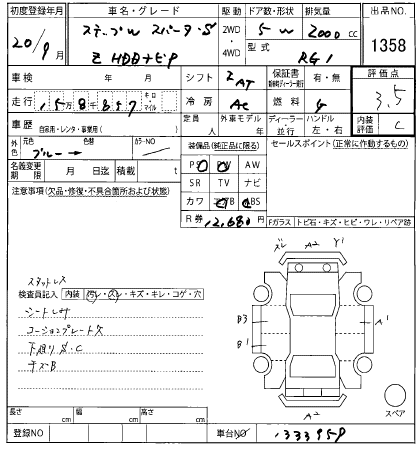 初度登録年月 車名・グレード 駆動 ドア数・形状 排気量 出品NO.
20/9 ステップW スパーダ・S 2WD・4WD 5 W 2000 cc 1358
Z HDDナビP 型式 RG1
車検 年 月 シフト 2 AT 保証書 有・無 評価点 3.5
走行 キロ・マイル 冷房 AC 燃料 G
車歴 自家用・レンタ・事業用( ) 定員 人 外車モデル ディーラー・並行 ハンドル 左・右 内装評価 C
外色 元色 色替 カラーNO 装備品(純正品に限る) セールスポイント(正常に作動するもの)
ブルー →
名義変更期限 月 日迄 積載 t PS PW AW
注意事項(欠品・修復・不具合箇所および状態) SR TV ナビ
カワ ABS
R券 12,680 Fガラス トビ石・キズ・ヒビ・ワレ・リペア跡
ズレ A2 Y1
スタットレス
検査員記入 内装 汚レ・スレ・キズ・キレ・コゲ・穴
シートしみ
コーションプレート欠
下廻りS・C
キズB
B3 A1
B1
A2 スペア
長さ cm 幅 cm 高さ cm
登録NO 車台NO